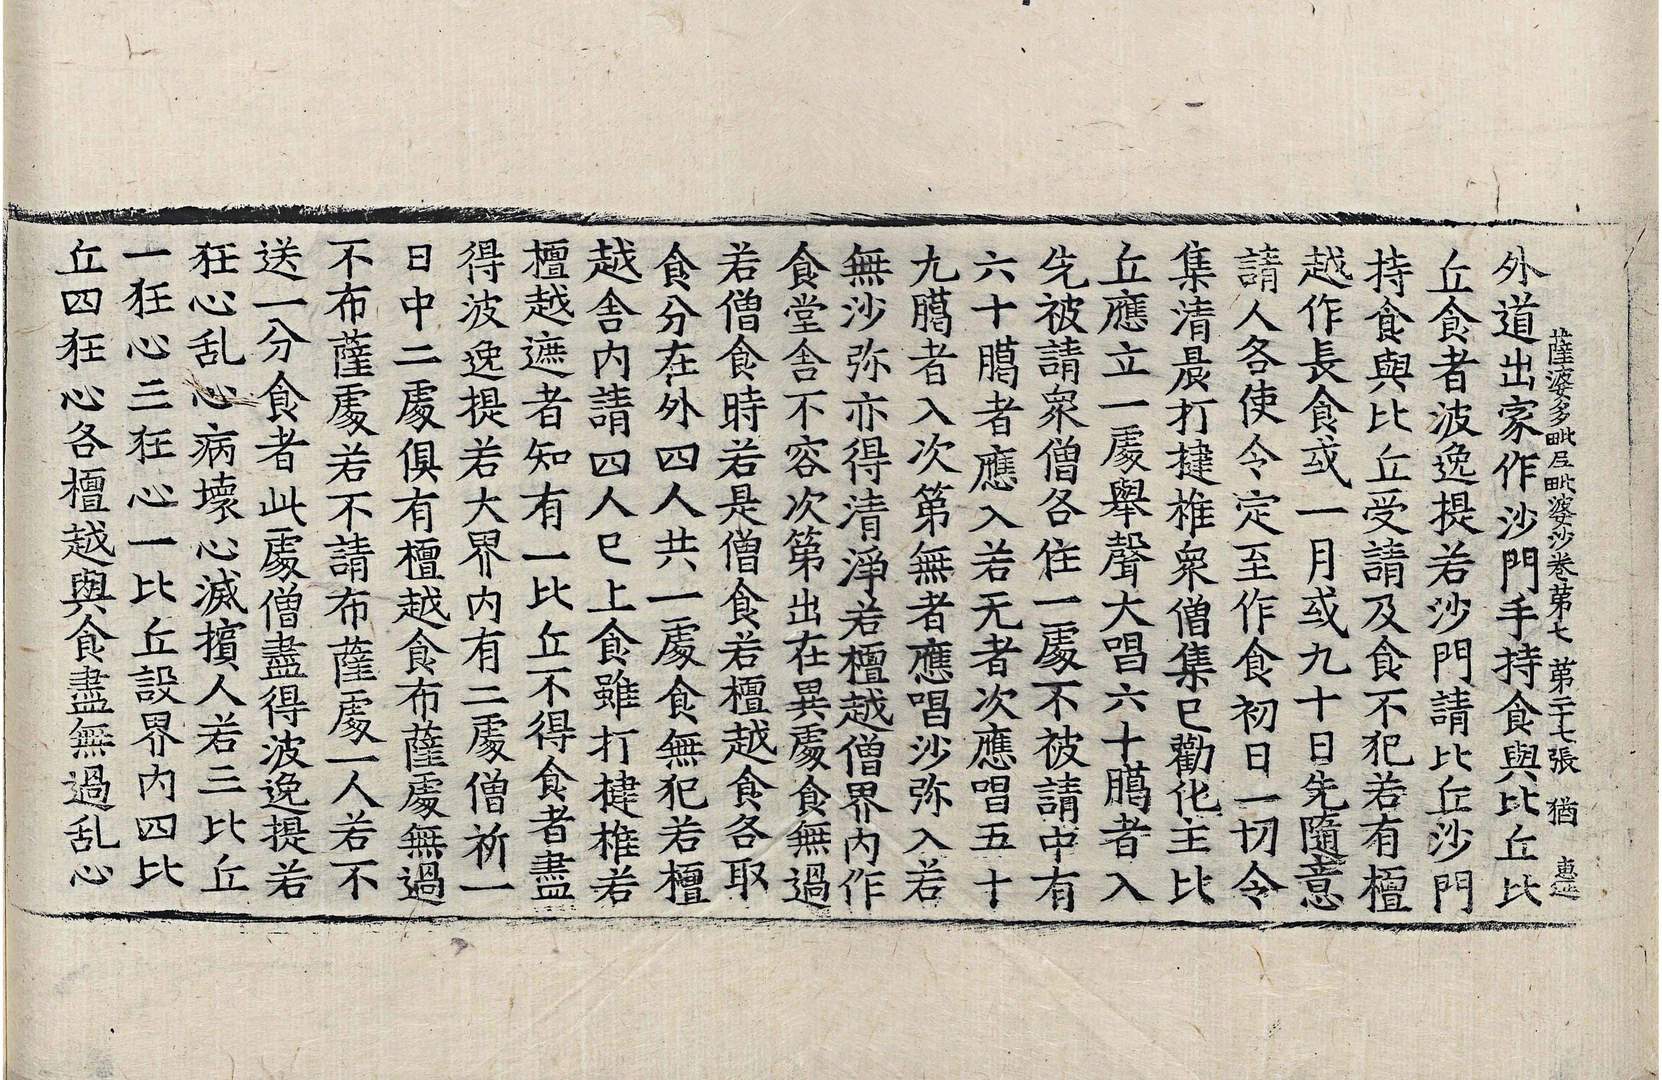 薩婆多毗尼毗婆沙卷第七 第二十七張 猶
外道出家作沙門手持食與比丘比
丘食者波逸提若沙門請比丘沙門
持食與比丘受請及食不犯若有檀
越作長食或一月或九十日先隨意
請人各使令定至作食初日一切令
集清晨打揵椎衆僧集已勸化主比
丘應立一處舉聲大唱六十臈者入
先被請衆僧各住一處不被請中有
六十臈者應入若无者次應唱五十
九臈者入次第無者應唱沙弥入若
無沙弥亦得清淨若檀越僧界內作
食堂舍不容次第出在異處食無過
若僧食時若是僧食若檀越食各取
食分在外四人共一處食無犯若檀
越舍內請四人已上食雖打揵椎若
檀越遮者知有一比丘不得食者盡
得波逸提若大界內有二處僧祈一
日中二處俱有檀越食布薩處無過
不布薩處若不請布薩處一人若不
送一分食者此處僧盡得波逸提若
狂心乱心病壞心滅擯人若三比丘
一狂心三狂心一比丘設界內四比
丘四狂心各檀越與食盡無過乱心